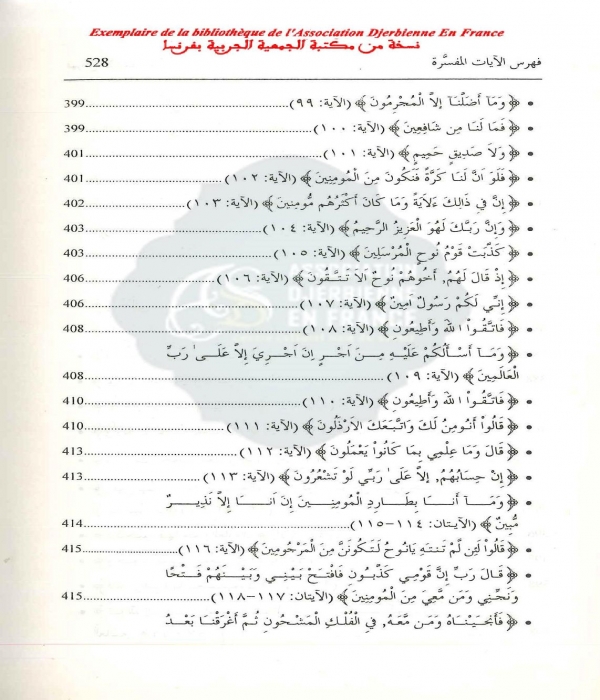 Exemplaire de la bibliothèque de l'Association Djerbienne En France
نسخة من مكتبة الجمعية الجربية بفرنسا
فهرس الآيات المفسَّرة 528
• ﴿ وَمَآ أَضَلَّنَآ إِلاَّ الْمُجْرِمُونَ ﴾ (الآية: ٩٩)......399
• ﴿ فَمَا لَنَا مِن شَافِعِينَ ﴾ (الآية: ١٠٠)......399
• ﴿ وَلاَ صَدِيقٍ حَمِيمٍ ﴾ (الآية: ١٠١)......401
• ﴿ فَلَوَ اَنَّ لَنَا كَرَّةً فَنَكُونَ مِنَ الْمُومِنِينَ ﴾ (الآية: ١٠٢)......401
• ﴿ إِنَّ فِي ذَالِكَ ءَلاَيَةً وَمَا كَانَ أَكْثَرُهُم مُّومِنِينَ ﴾ (الآية: ١٠٣)......402
• ﴿ وَإِنَّ رَبَّكَ لَهُوَ الْعَزِيزُ الرَّحِيمُ ﴾ (الآية: ١٠٤)......403
• ﴿ كَذَّبَتْ قَوْمُ نُوحٍ الْمُرْسَلِينَ ﴾ (الآية: ١٠٥)......403
• ﴿ إِذْ قَالَ لَهُمُ, أَخُوهُمْ نُوحٌ اَلاَ تَتَّقُونَ ﴾ (الآية: ١٠٦)......406
• ﴿ إِنِّي لَكُمْ رَسُولٌ اَمِينٌ ﴾ (الآية: ١٠٧)......406
• ﴿ فَاتَّقُواْ اللهَ وَأَطِيعُونِ ﴾ (الآية: ١٠٨)......408
• ﴿ وَمَآ أَسْأَلُكُمْ عَلَيْهِ مِنَ اَجْرٍ اِنَ اَجْرِيَ إِلاَّ عَلَىٰ رَبِّ
الْعَالَمِينَ ﴾ (الآية: ١٠٩)......408
• ﴿ فَاتَّقُواْ اللهَ وَأَطِيعُونِ ﴾ (الآية: ١١٠)......410
• ﴿ قَالُواْ أَنُومِنُ لَكَ وَاتَّبَعَكَ الاَرْذَلُونَ ﴾ (الآية: ١١١)......410
• ﴿ قَالَ وَمَا عِلْمِي بِمَا كَانُواْ يَعْمَلُونَ ﴾ (الآية: ١١٢)......413
• ﴿ إِنْ حِسَابُهُمُ, إِلاَّ عَلَىٰ رَبِّي لَوْ تَشْعُرُونَ ﴾ (الآية: ١١٣)......413
• ﴿ وَمَآ أَنَا بِطَارِدِ الْمُومِنِينَ إِنَ اَنَا إِلاَّ نَذِيرٌ
مُّبِينٌ ﴾ (الآيتان: ١١٤-١١٥)......414
• ﴿ قَالُواْ لَئِن لَّمْ تَنتَهِ يَانُوحُ لَتَكُونَنَّ مِنَ الْمَرْجُومِينَ ﴾ (الآية: ١١٦)......415
• ﴿ قَالَ رَبِّ إِنَّ قَوْمِي كَذَّبُونِ فَافْتَحْ بَيْنِي وَبَيْنَهُمْ فَتْحًا
وَنَجِّنِي وَمَن مَّعِيَ مِنَ الْمُومِنِينَ ﴾ (الآيتان: ١١٧-١١٨)......415
• ﴿ فَأَنجَيْنَاهُ وَمَن مَّعَهُ, فِي الْفُلْكِ الْمَشْحُونِ ثُمَّ أَغْرَقْنَا بَعْدُ
ASSOCIATION
DJERBIENNE
EN FRANCE